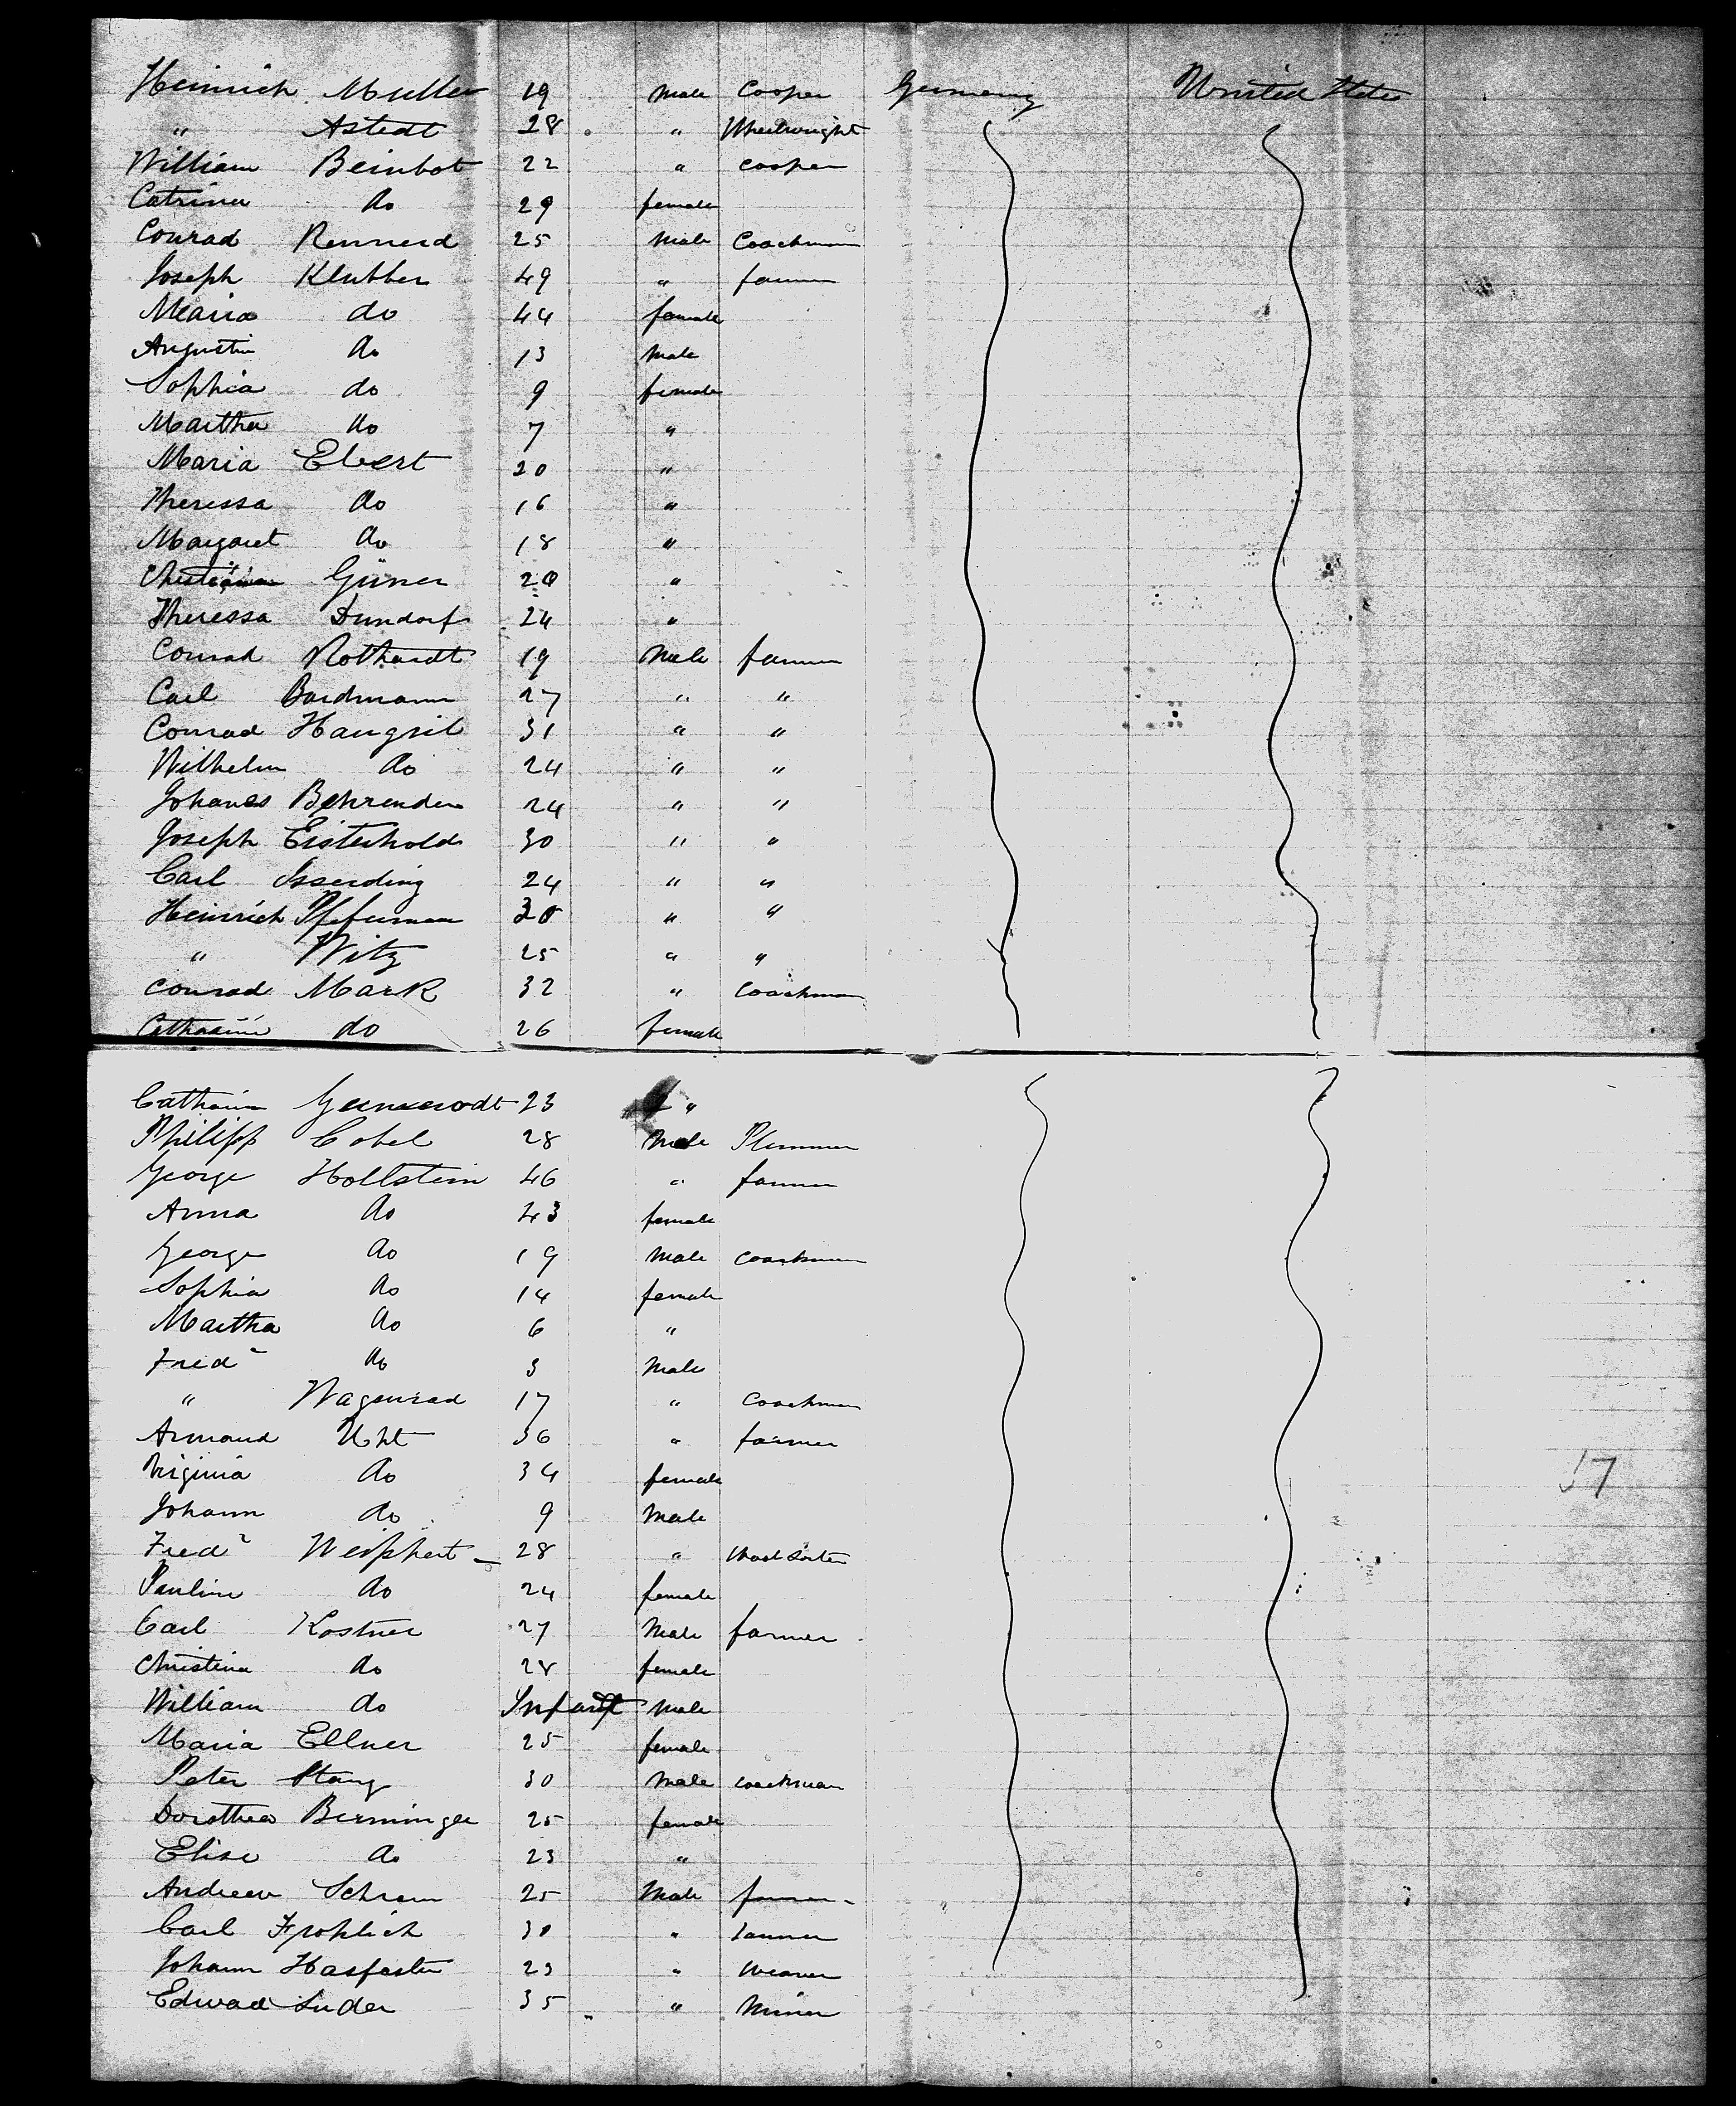 Heinrich Muller 19 Male Cooper Germany United States
" Astedt 28 " Wheelwright
William Beinbot 22 " cooper
Catrina do 29 female
Conrad Rennerd 25 Male Coachman
Joseph Klubber 49 " farmer
Maria do 44 female
Augustin do 13 Male
Sophia do 9 female
Martha do 7 "
Maria Ebert 20 "
Theressa do 16 "
Margaret do 18 "
Güner 20 "
Theressa Dundorf 24 "
Conrad Rothardt 19 Male farmer
Carl Bardmann 27 " "
Conrad Haugsil 31 " "
Wilhelm do 24 " "
Johanes Behrender 24 " "
Joseph Eisterhold 30 " "
Carl Isserding 24 " "
Heinrich 30 " "
" Witz 25 " "
Conrad Mark 32 " Coachman
Catharine do 26 female
Catharine 23 "
Philipp Cobel 28 Male Plummer
George Hollstein 46 " farmer
Anna do 43 female
George do 19 Male coachman
Sophia do 14 female
Martha do 6 "
Fredr do 3 Male
" Wagenrad 17 " Coachman
Armand Uht 36 " farmer
Virginia do 34 female
Johann do 9 Male
Fredr Weiphert 28 " Wool Sorter
Pauline do 24 female
Carl Kostner 27 Male farmer
Christina do 28 female
William do Infant Male
Maria Ellner 25 female
Peter Stang 30 Male coachman
Dorothea Berminger 25 female
Elise do 23 "
Andreew Schram 25 Male farmer
Carl Frohlich 30 " tanner
Johann Hasfarter 23 " Weaver
Edward Luder 35 " Miner
17